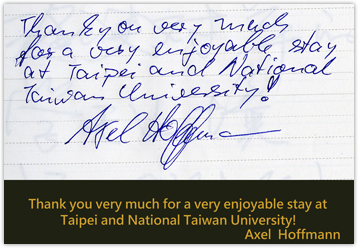 Thank you very much
for a very enjoyable stay
at Taipei and National
Taiwan University!
Axel Hoffmann
Thank you very much for a very enjoyable stay at
Taipei and National Taiwan University!
Axel Hoffmann